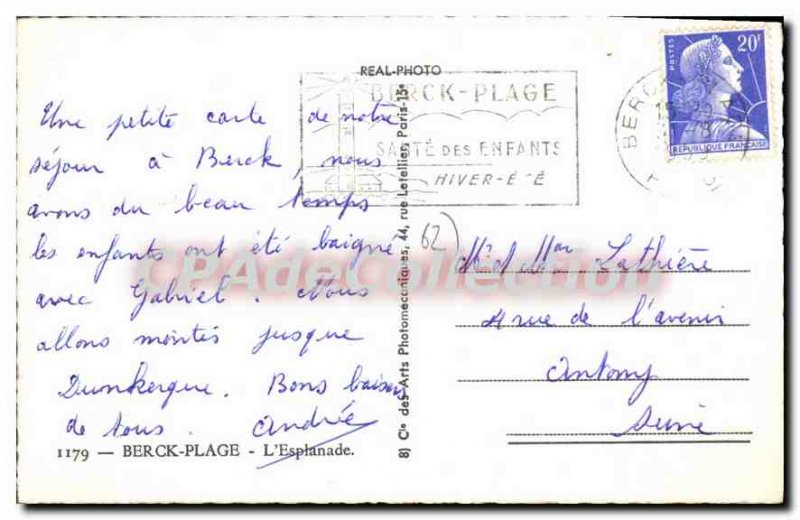 REAL-PHOTO
BERCK-PLAGE
SANTÉ DES ENFANTS
HIVER-ÉTÉ
POSTES
20F
REPUBLIQUE FRANÇAISE
BERCK
Une petite carte de notre
séjour à Berck, nous
avons du beau temps
les enfants ont été baigné
avec Gabriel. Nous
allons montés jusque
Dunkerque. Bons baisers
de tous. Andrée
1179 — BERCK-PLAGE - L'Esplanade.
8) Cie des Arts Photomecaniques, 44, rue Letellier, Paris-15e
62
Mr et Mme Lathière
4 rue de l'avenir
Antony
Seine
CPAdeCollection